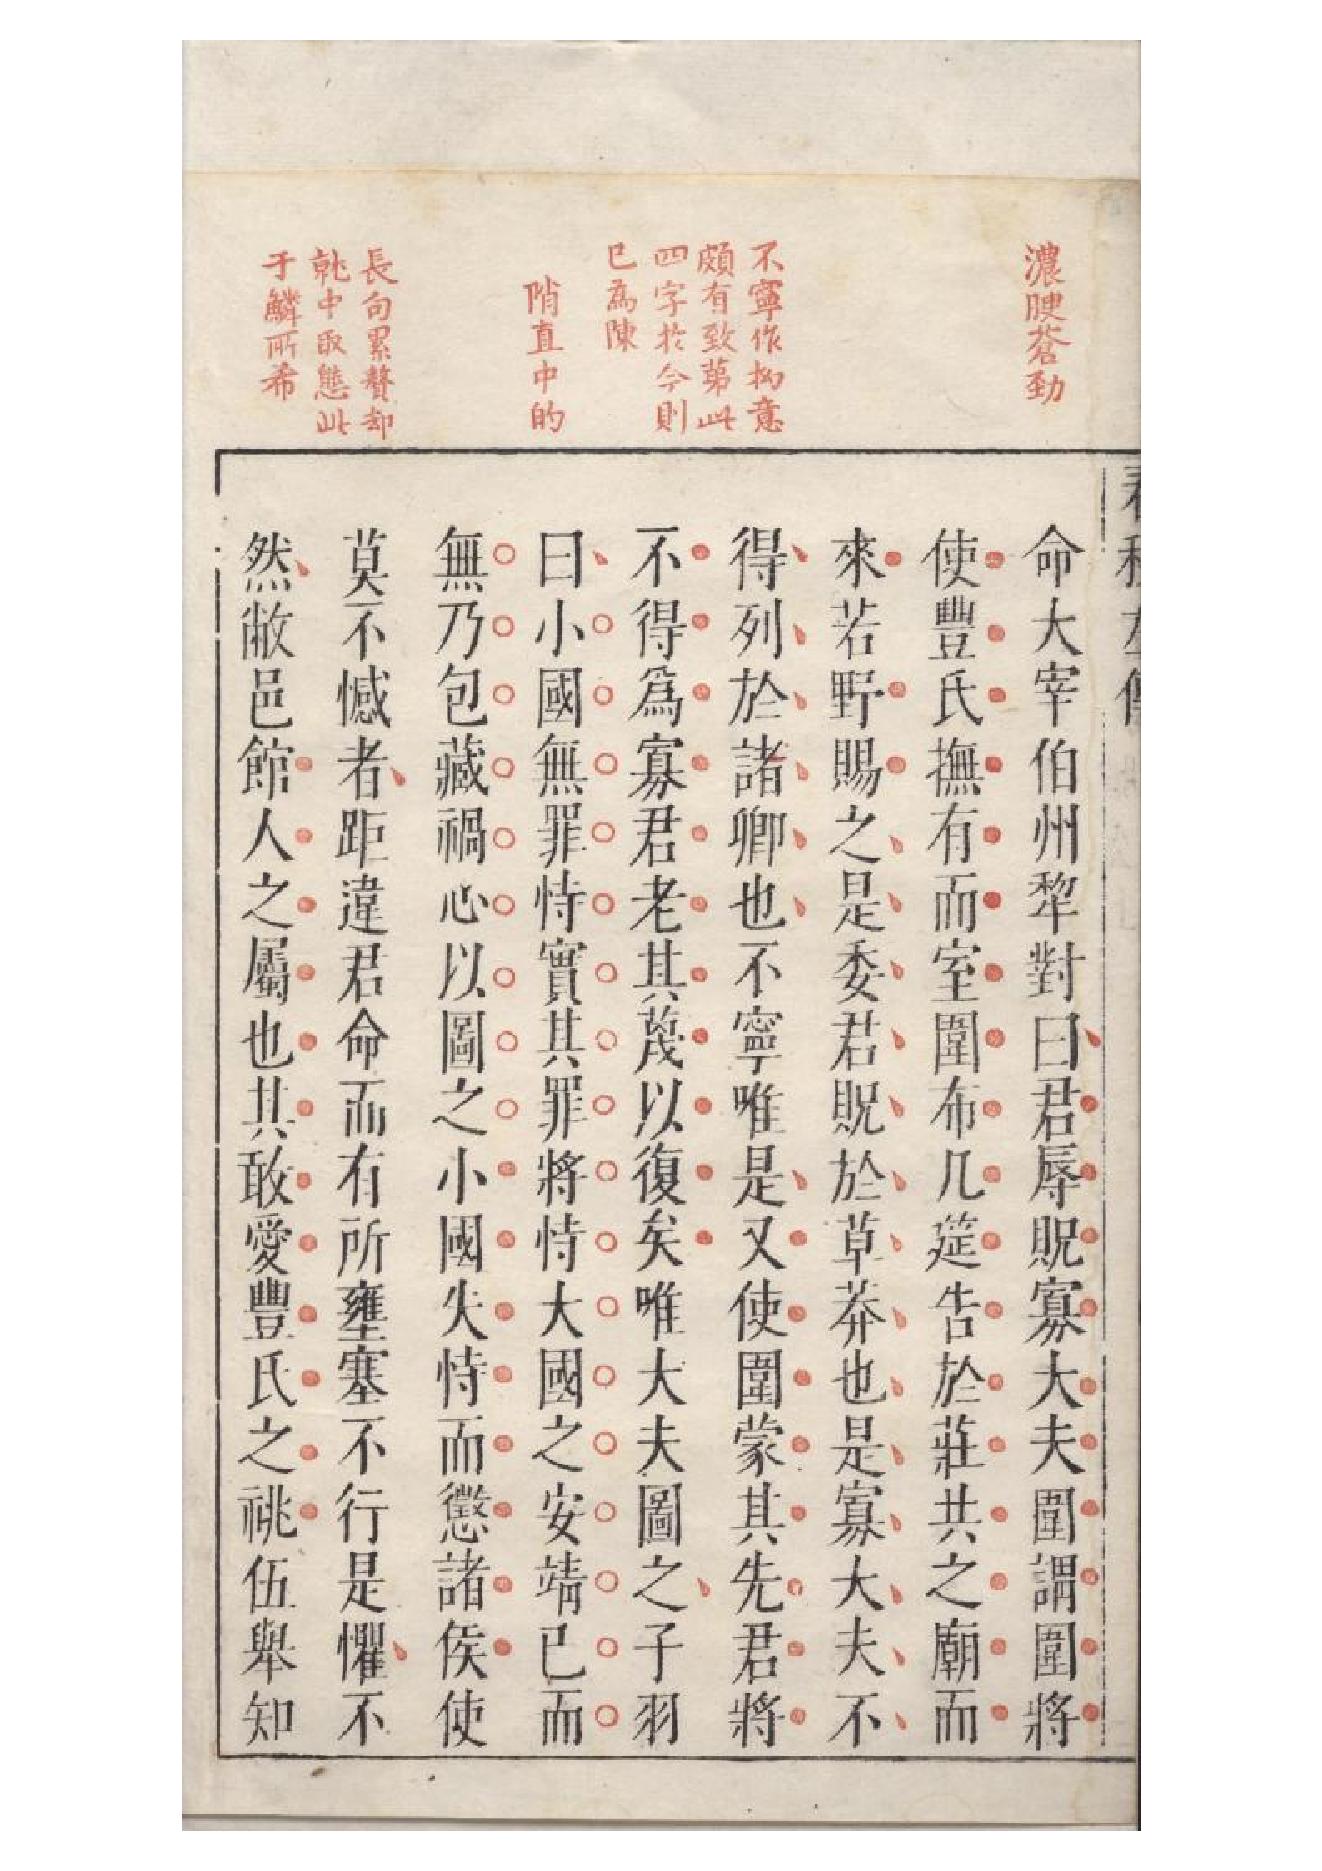 濃腴蒼勁
不寧作拗意
頗有致苐此
四字於今則
已為陳
陗直中的
長句累贅却
就中取態此
于鱗所希
春秋左傳
命大宰伯州犂對曰君辱貺寡大夫圍謂圍將
使豐氏撫有而室圍布几筵告於莊共之廟而
來若野賜之是委君貺於草莽也是寡大夫不
得列於諸卿也不寧唯是又使圍蒙其先君將
不得爲寡君老其蔑以復矣唯大夫圖之子羽
曰小國無罪恃實其罪將恃大國之安靖已而
無乃包藏禍心以圖之小國失恃而懲諸侯使
莫不憾者距違君命而有所壅塞不行是懼不
然敝邑館人之屬也其敢愛豐氏之祧伍舉知